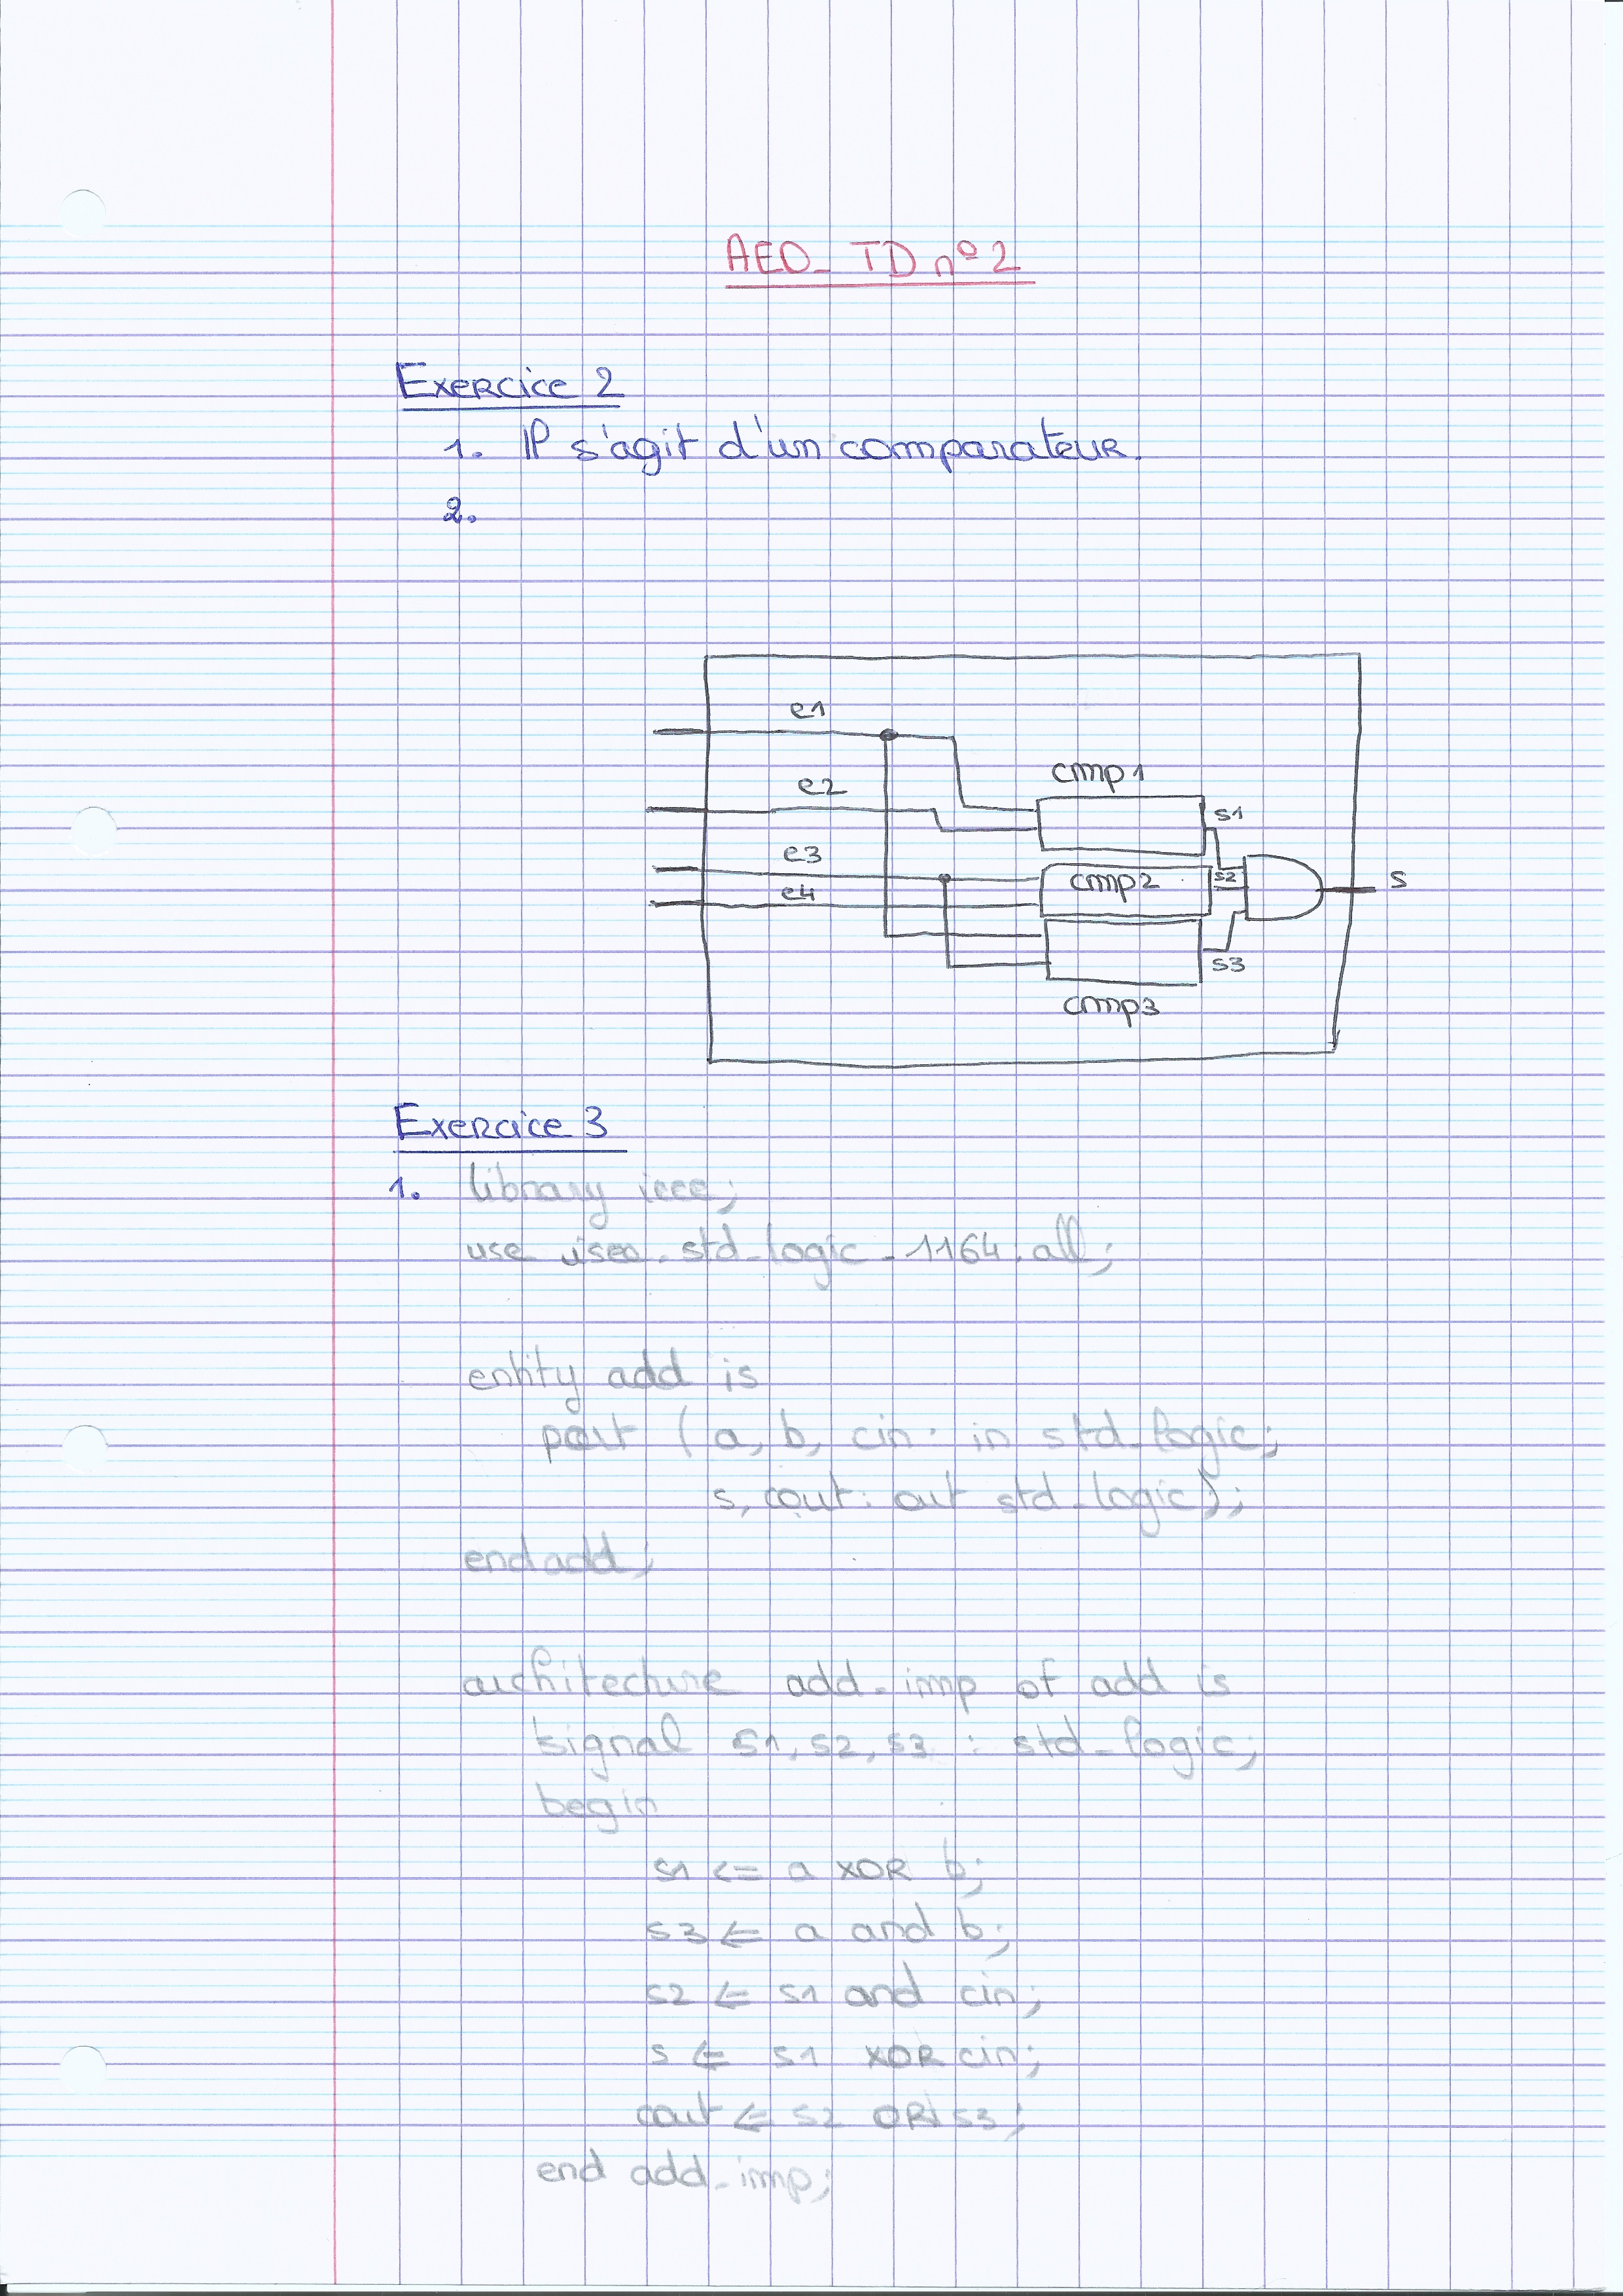 AEO_ TD nº2
Exercice 2
1. Il s'agit d'un comparateur.
2.
e1
cmp1
e2
s1
e3
cmp2
s2
s
e4
s3
cmp3
Exercice 3
1. library ieee;
use ieee.std_logic_1164.all;
entity add is
port (a, b, cin: in std_logic;
s, cout: out std_logic);
end add;
architecture add_imp of add is
signal s1, s2, s3 : std_logic;
begin
s1 <= a XOR b;
s3 <= a and b;
s2 <= s1 and cin;
s <= s1 XOR cin;
cout <= s2 OR s3;
end add_imp;